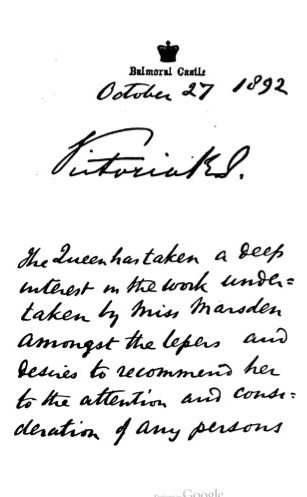 Balmoral Castle
October 27 1892
Victoria R I.
The Queen has taken a deep
interest in the work under=
taken by Miss Marsden
amongst the lepers and
desires to recommend her
to the attention and consi=
deration of any persons
Digitized by Google